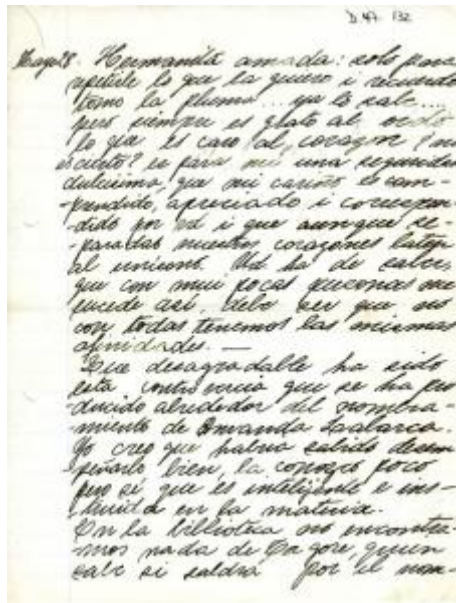 D.47 132
Mayo 28. Hermanita amada: solo para
repetirle lo que la quiero i recuerdo
tomo la pluma... ya lo sabe....
pero siempre es grato al oido
lo que es caro al corazon ¿no
es cierto? es para mí una seguridad
dulcisima, que mi cariño es com-
-prendido, apreciado i correspon-
-dido por Ud i que aunque se-
-paradas nuestros corazones laten
al unisono. Ud ha de saber,
que con mui pocas personas me
sucede así, debe ser que no
con todas tenemos las mismas
afinidades. —
Que desagradable ha sido
esta controversia que se ha pro
-ducido alrededor del nombra-
-miento de Amanda Labarca.
Yo creo que habria sabido desem
-peñarlo bien, la conozco poco
pero sí que es intelijente e ins-
-truida en la materia.
En la biblioteca no encontra-
-mos nada de Tagore, quien
sabe si saldrá por el nom-